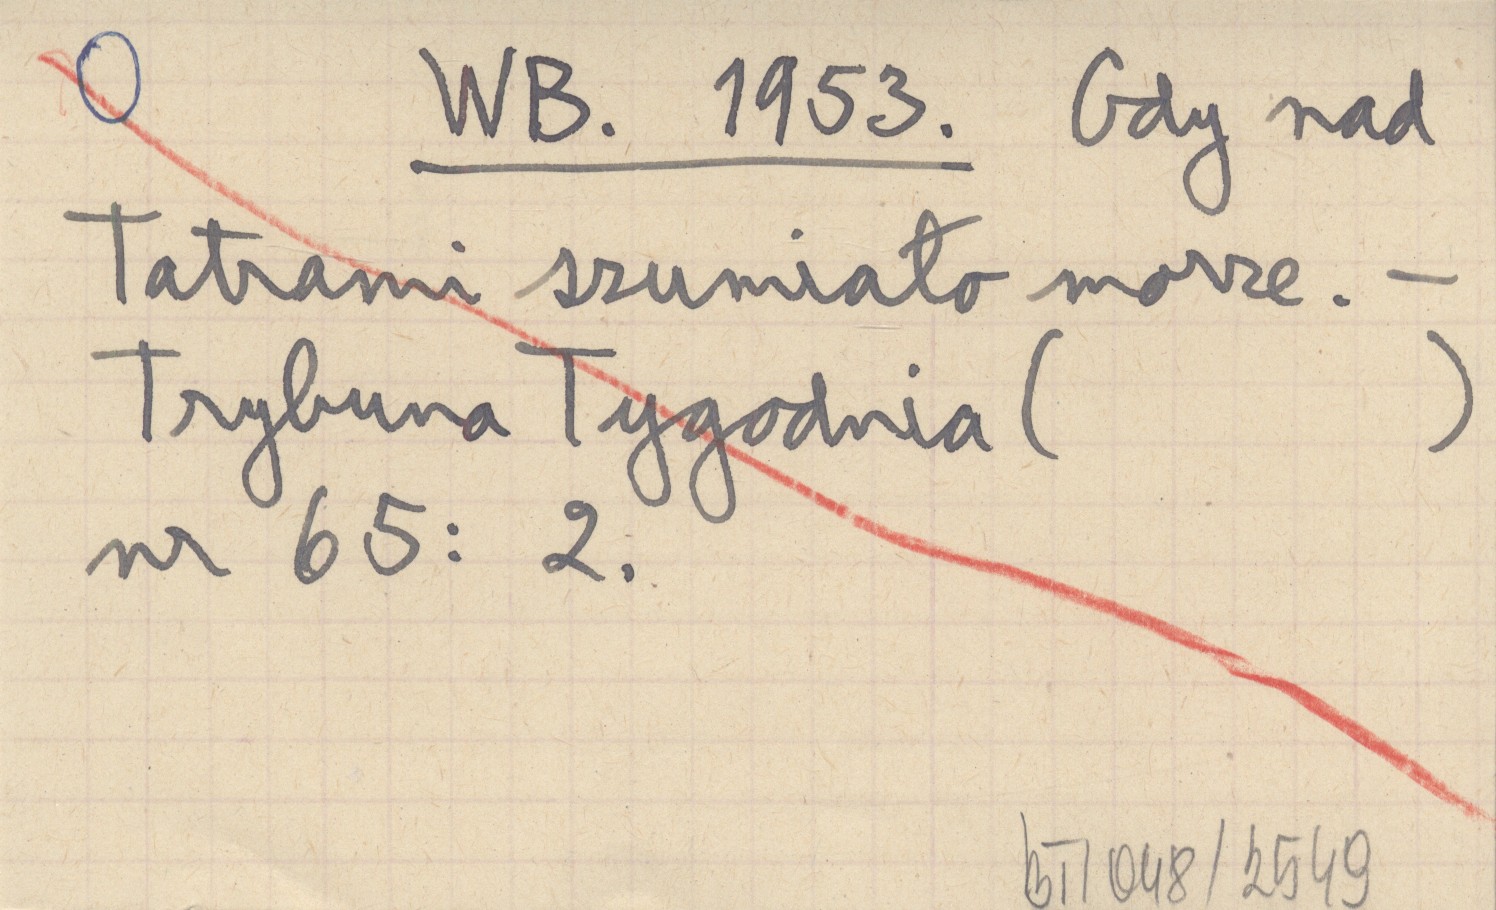 WB. 1953. Gdy nad
Tatrami szumiało morze. –
Trybuna Tygodnia (          )
nr 65: 2.
048/2549